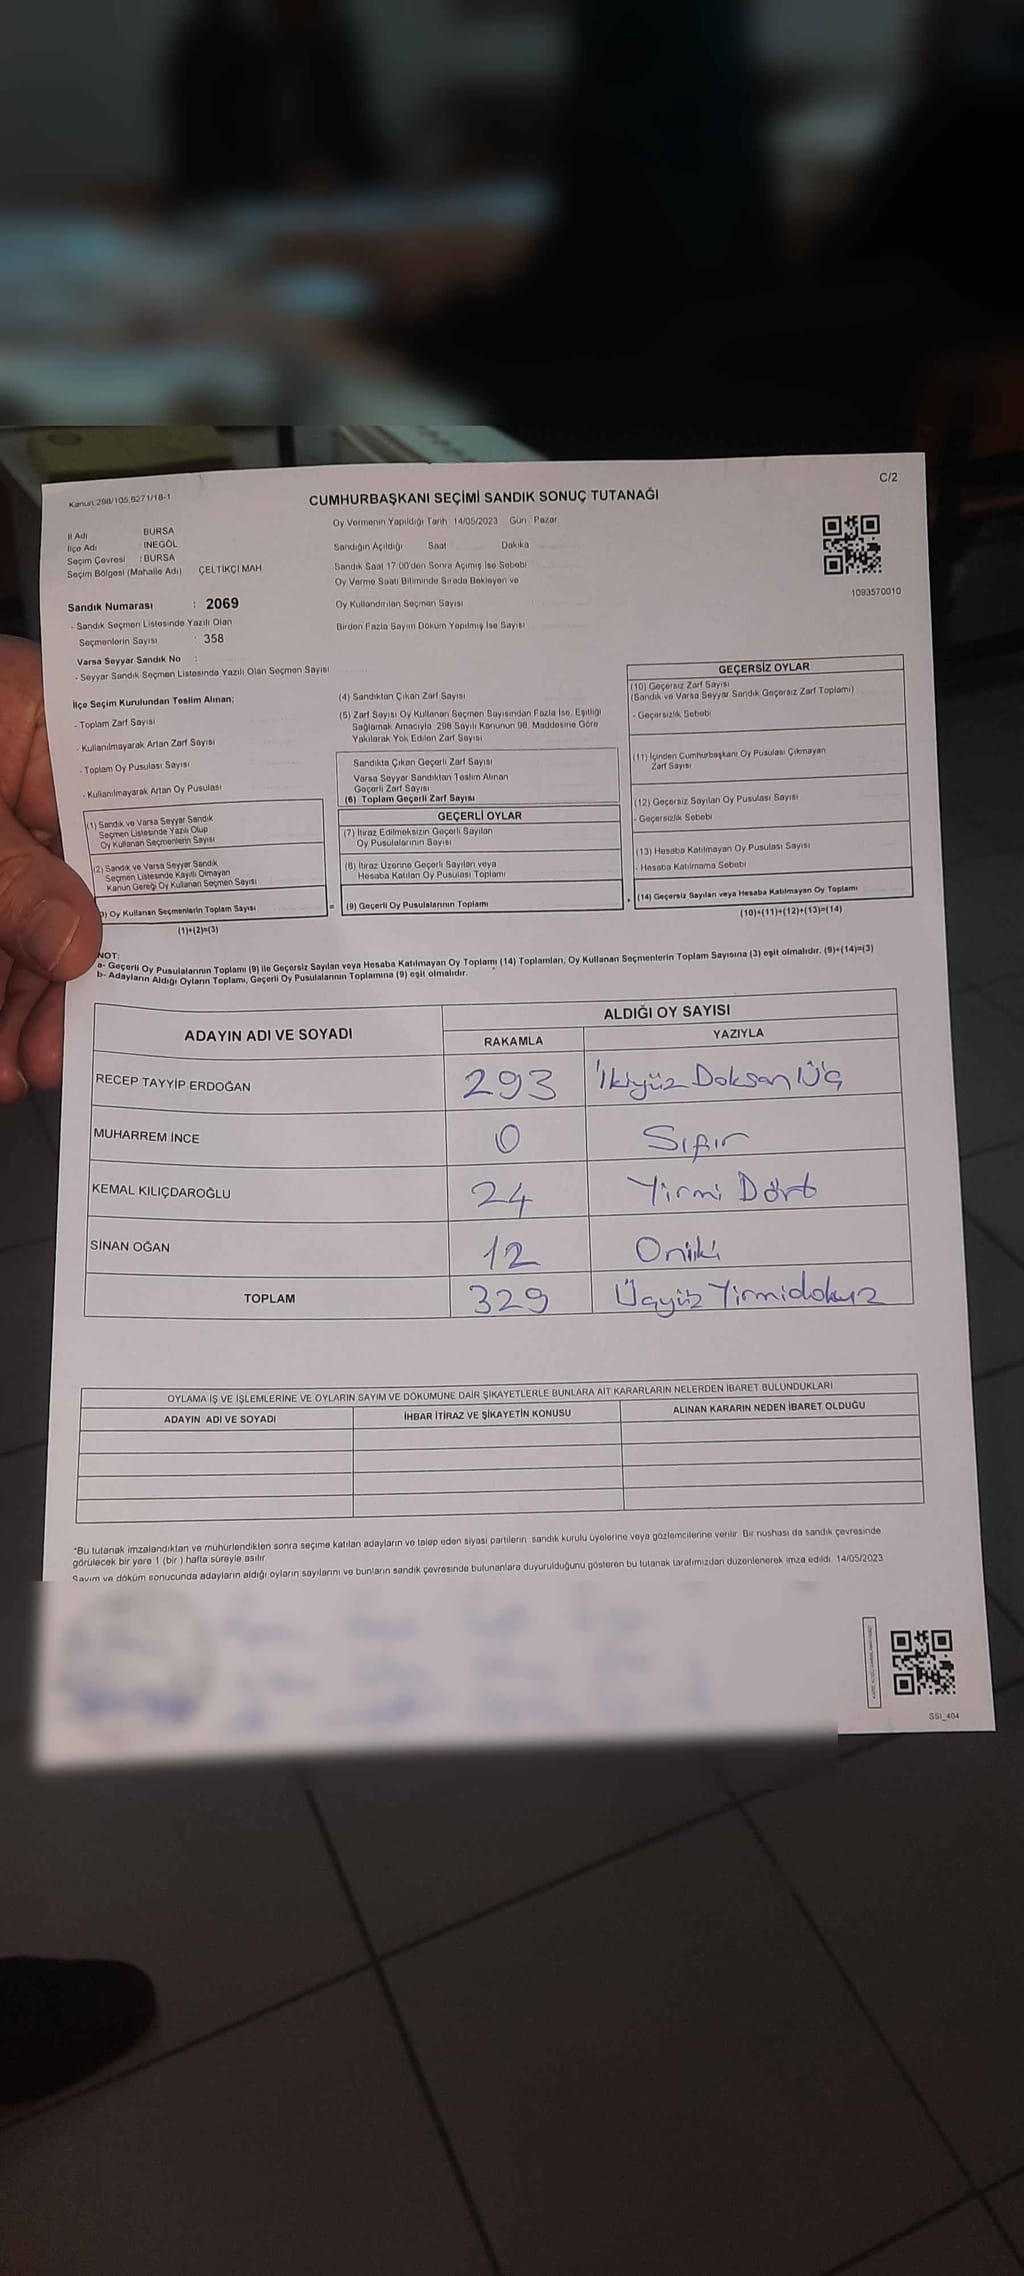 Kanun:298/105,6271/18-1
C/2
CUMHURBAŞKANI SEÇİMİ SANDIK SONUÇ TUTANAĞI
Oy Vermenin Yapıldığı Tarih 14/05/2023 Gün Pazar
İl Adı BURSA
İlçe Adı : İNEGÖL
Seçim Çevresi : BURSA
Seçim Bölgesi (Mahalle Adı) ÇELTİKÇİ MAH.
Sandığın Açıldığı Saat Dakika
Sandık Saat 17.00'den Sonra Açımış İse Sebebi
Oy Verme Saati Bitiminde Sırada Bekleyen ve
Oy Kullandırılan Seçmen Sayısı
Birden Fazla Sayım Döküm Yapılmış İse Sayısı
1093570010
Sandık Numarası : 2069
- Sandık Seçmen Listesinde Yazılı Olan
Seçmenlerin Sayısı : 358
Varsa Seyyar Sandık No :
- Seyyar Sandık Seçmen Listesinde Yazılı Olan Seçmen Sayısı
İlçe Seçim Kurulundan Teslim Alınan;
- Toplam Zarf Sayısı
- Kullanılmayarak Artan Zarf Sayısı
- Toplam Oy Pusulası Sayısı
- Kullanılmayarak Artan Oy Pusulası
(1) Sandık ve Varsa Seyyar Sandık
Seçmen Listesinde Yazılı Olup
Oy Kullanan Seçmenlerin Sayısı
(2) Sandık ve Varsa Seyyar Sandık
Seçmen Listesinde Kayıtlı Olmayan
Kanun Gereği Oy Kullanan Seçmen Sayısı
) Oy Kullanan Seçmenlerin Toplam Sayısı
(1)+(2)=(3)
(4) Sandıktan Çıkan Zarf Sayısı
(5) Zarf Sayısı Oy Kullanan Seçmen Sayısından Fazla İse, Eşitliği
Sağlamak Amacıyla 298 Sayılı Kanunun 98. Maddesine Göre
Yakılarak Yok Edilen Zarf Sayısı
Sandıkta Çıkan Geçerli Zarf Sayısı
Varsa Seyyar Sandıktan Teslim Alınan
Geçerli Zarf Sayısı
(6) Toplam Geçerli Zarf Sayısı
GEÇERLİ OYLAR
(7) İtiraz Edilmeksizin Geçerli Sayılan
Oy Pusulalarının Sayısı
(8) İtiraz Üzerine Geçerli Sayılan veya
Hesaba Katılan Oy Pusulası Toplamı
= (9) Geçerli Oy Pusulalarının Toplamı
GEÇERSİZ OYLAR
(10) Geçersiz Zarf Sayısı
(Sandık ve Varsa Seyyar Sandık Geçersiz Zarf Toplamı)
- Geçersizlik Sebebi
(11) İçinden Cumhurbaşkanı Oy Pusulası Çıkmayan
Zarf Sayısı
(12) Geçersiz Sayılan Oy Pusulası Sayısı
- Geçersizlik Sebebi
(13) Hesaba Katılmayan Oy Pusulası Sayısı
- Hesaba Katılmama Sebebi
+ (14) Geçersiz Sayılan veya Hesaba Katılmayan Oy Toplamı
(10)+(11)+(12)+(13)=(14)
NOT:
a- Geçerli Oy Pusulalarının Toplamı (9) ile Geçersiz Sayılan veya Hesaba Katılmayan Oy Toplamı (14) Toplamları, Oy Kullanan Seçmenlerin Toplam Sayısına (3) eşit olmalıdır. (9)+(14)=(3)
b- Adayların Aldığı Oyların Toplamı, Geçerli Oy Pusulalarının Toplamına (9) eşit olmalıdır.
ADAYIN ADI VE SOYADI ALDIĞI OY SAYISI
RAKAMLA YAZIYLA
RECEP TAYYİP ERDOĞAN 293 İkiyüz Doksan Üç
MUHARREM İNCE 0 Sıfır
KEMAL KILIÇDAROĞLU 24 Yirmi Dört
SİNAN OĞAN 12 Oniki
TOPLAM 329 Üçyüz Yirmidokuz
OYLAMA İŞ VE İŞLEMLERİNE VE OYLARIN SAYIM VE DÖKÜMÜNE DAİR ŞİKAYETLERLE BUNLARA AİT KARARLARIN NELERDEN İBARET BULUNDUKLARI
ADAYIN ADI VE SOYADI İHBAR İTİRAZ VE ŞİKAYETİN KONUSU ALINAN KARARIN NEDEN İBARET OLDUĞU
*Bu tutanak imzalandıktan ve mühürlendikten sonra seçime katılan adayların ve talep eden siyasi partilerin sandık kurulu üyelerine veya gözlemcilerine verilir. Bir nüshası da sandık çevresinde
görülecek bir yere 1 (bir) hafta süreyle asılır
Sayım ve döküm sonucunda adayların aldığı oyların sayılarını ve bunların sandık çevresinde bulunanlara duyurulduğunu gösteren bu tutanak tarafımızdan düzenlenerek imza edildi. 14/05/2023
SSI_404